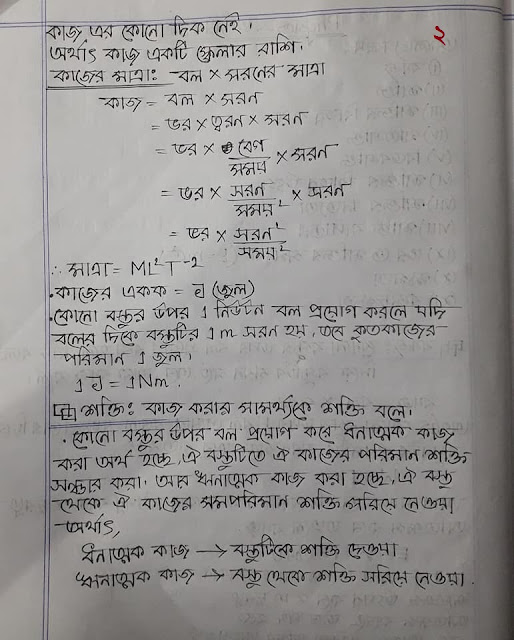 কাজ এর কোনো দিক নেই।
২
অর্থাৎ কাজ একটি স্কেলার রাশি।
কাজের মাত্রাঃ বল × সরনের মাত্রা
কাজ = বল × সরন
= ভর × ত্বরন × সরন
= ভর × বেগ/সময় × সরন
= ভর × সরন/সময়² × সরন
= ভর × সরন²/সময়²
∴ মাত্রা = ML²T⁻²
• কাজের একক = J (জুল)
• কোনো বস্তুর উপর 1 নিউটন বল প্রয়োগ করলে যদি
বলের দিকে বস্তুটির 1 m সরন হয়, তবে কৃতকাজের
পরিমান 1 জুল।
1 J = 1Nm.
শক্তিঃ কাজ করার সামর্থ্যকে শক্তি বলে।
• কোনো বস্তুর উপর বল প্রয়োগ করে ধনাত্মক কাজ
করা অর্থ হচ্ছে, ঐ বস্তুটিতে ঐ কাজের পরিমান শক্তি
সঞ্চার করা। আর ঋনাত্মক কাজ করা হচ্ছে, ঐ বস্তু
থেকে ঐ কাজের সমপরিমান শক্তি সরিয়ে নেওয়া
অর্থাৎ,
ধনাত্মক কাজ → বস্তুটিকে শক্তি দেওয়া
ঋনাত্মক কাজ → বস্তু থেকে শক্তি সরিয়ে নেওয়া.